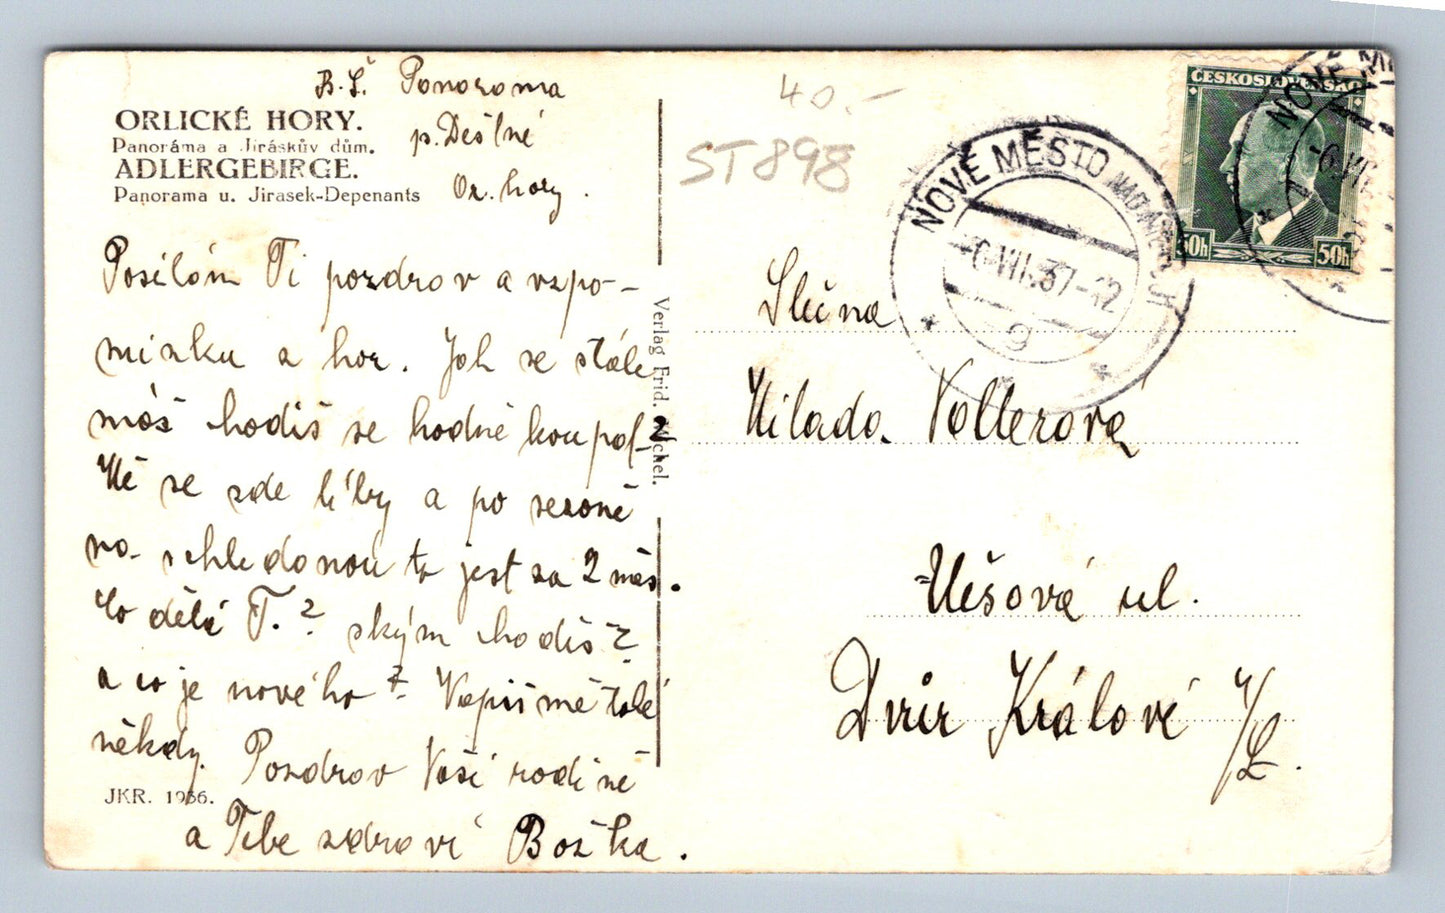 B. Š. Panorama
p. Deštné
Or. hory.
ORLICKÉ HORY.
Panoráma a Jiráskův dům.
ADLERGEBIRGE.
Panorama u. Jirasek-Depenants
Posílám Ti pozdrav a vzpo-
mínku z hor. Jak se stále
máš chodíš se hodně koupat?
Mě se zde líby a po sezoně
na schledanou to jest za 2 měs.
Co dělá T.? s kým chodíš?
a co je nového? Napiš mě také
někdy. Pozdrav Vaší rodině
a Tebe zdraví Božka.
JKR. 1936.
Verlag Frid. Nickel.
40.-
ST898
NOVÉ MĚSTO NAD MET.
-6.VII.37-12
9
ČESKOSLOVENSKO
50h 50h
NOVÉ MĚ
-6.VII
Slečna
Milada Vollerová
Ušová ul.
Dvůr Králové
n/L.